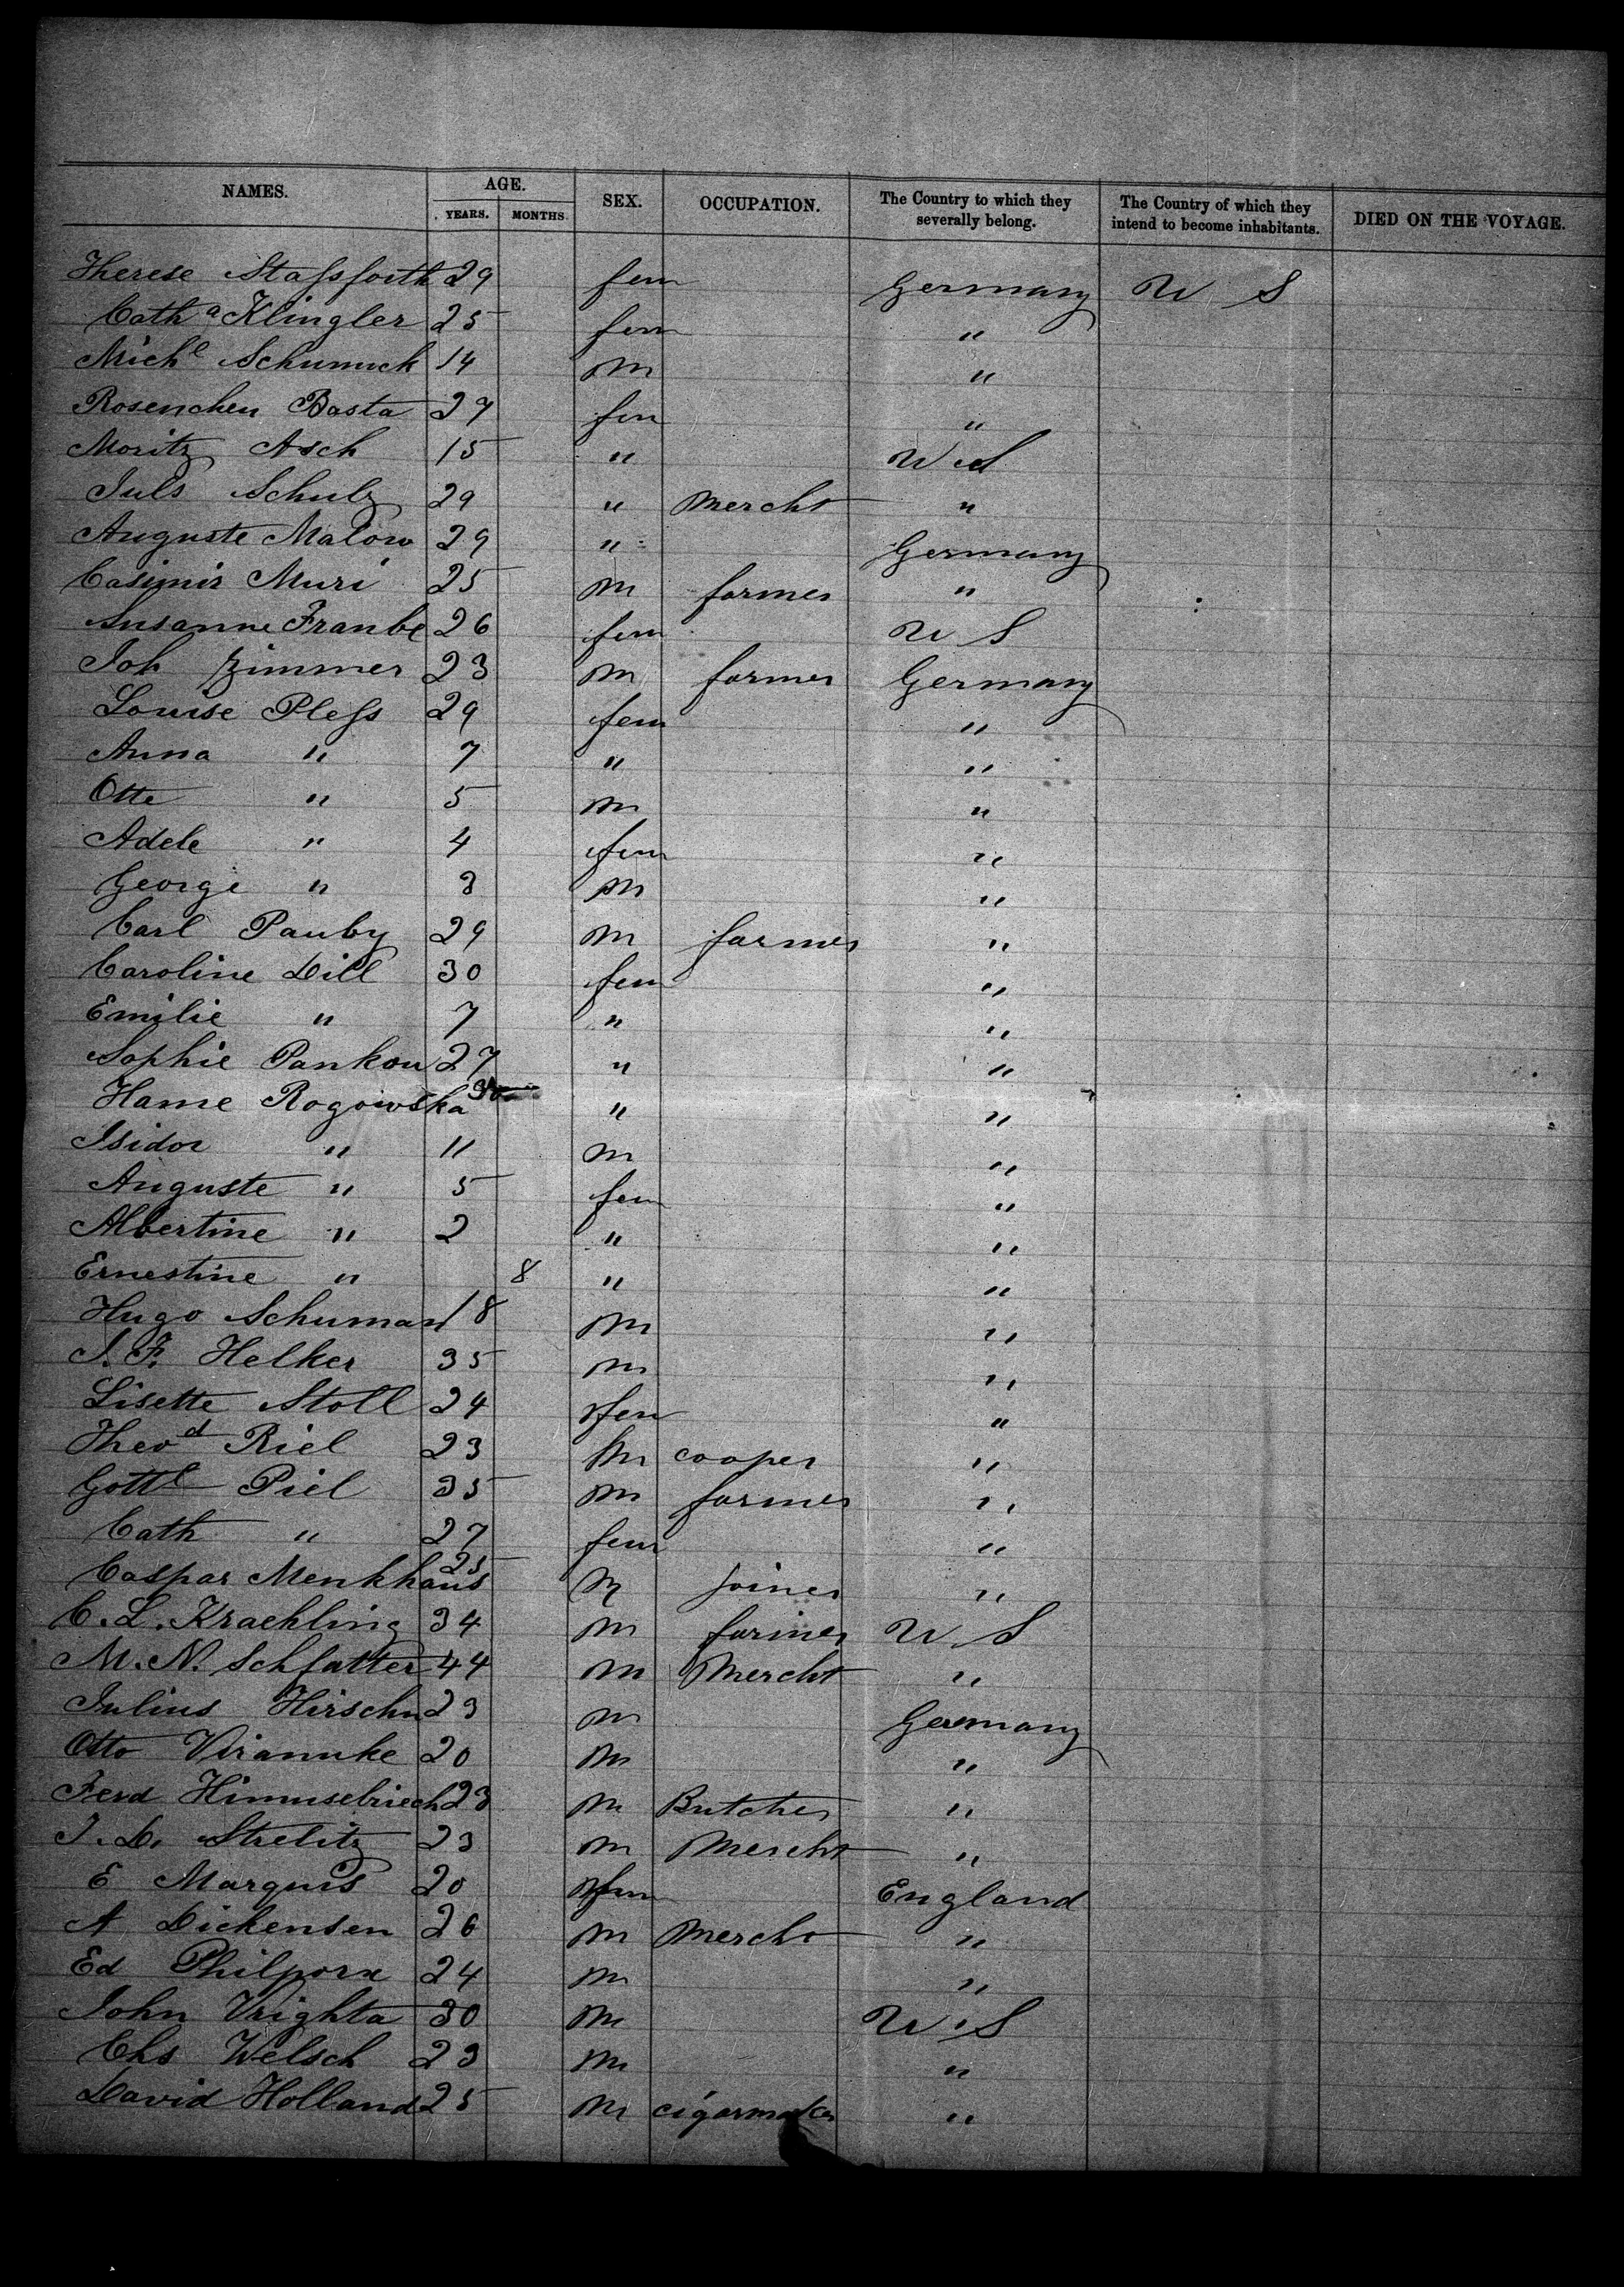 NAMES. AGE. SEX. OCCUPATION. The Country to which they severally belong. The Country of which they intend to become inhabitants. DIED ON THE VOYAGE.
YEARS. MONTHS.
Therese Staſsforth 29 fem Germany U S
Cath a Klingler 25 fem "
Michl Schumick 14 m "
Rosenchen Basta 27 fem "
Moritz Asch 15 " U S
Juls Schulz 29 " Mercht "
Auguste Malow 29 " Germany
Casimir Muri 25 m farmer "
Susanne Franbe 26 fem U S
Joh Zimmer 23 m farmer Germany
Louise Pleſs 29 fem "
Anna " 7 " "
Otto " 5 m "
Adele " 4 fem "
George " 3 m "
Carl Pauby 29 m farmer "
Caroline Dill 30 fem "
Emilie " 7 " "
Sophie Pankou 27 " "
Hame Rogowska 30 " "
Isidor " 11 m "
Auguste " 5 fem "
Albertine " 2 " "
Ernestine " 8 " "
Hugo Schuman 18 m "
J. F. Helker 35 m "
Lisette Stoll 24 fem "
Theod Riel 23 m cooper "
Gottl Piel 35 m farmer "
Cath " 27 fem "
Caspar Menkhaus 25 m joiner "
C. L. Kraehling 34 m farmer U S
M. N. Schfatter 44 m Mercht "
Julius Hirschn 23 m Germany
Otto Viranuke 20 m "
Ferd 23 m Butcher "
J. D. Strelitz 23 m Mercht "
E Marquis 20 fem England
A Dickensen 26 m Mercht "
Ed Philporn 24 m "
John Vrighta 30 m U. S
Chs Welsch 23 m "
David Holland 25 m cigarmaker "